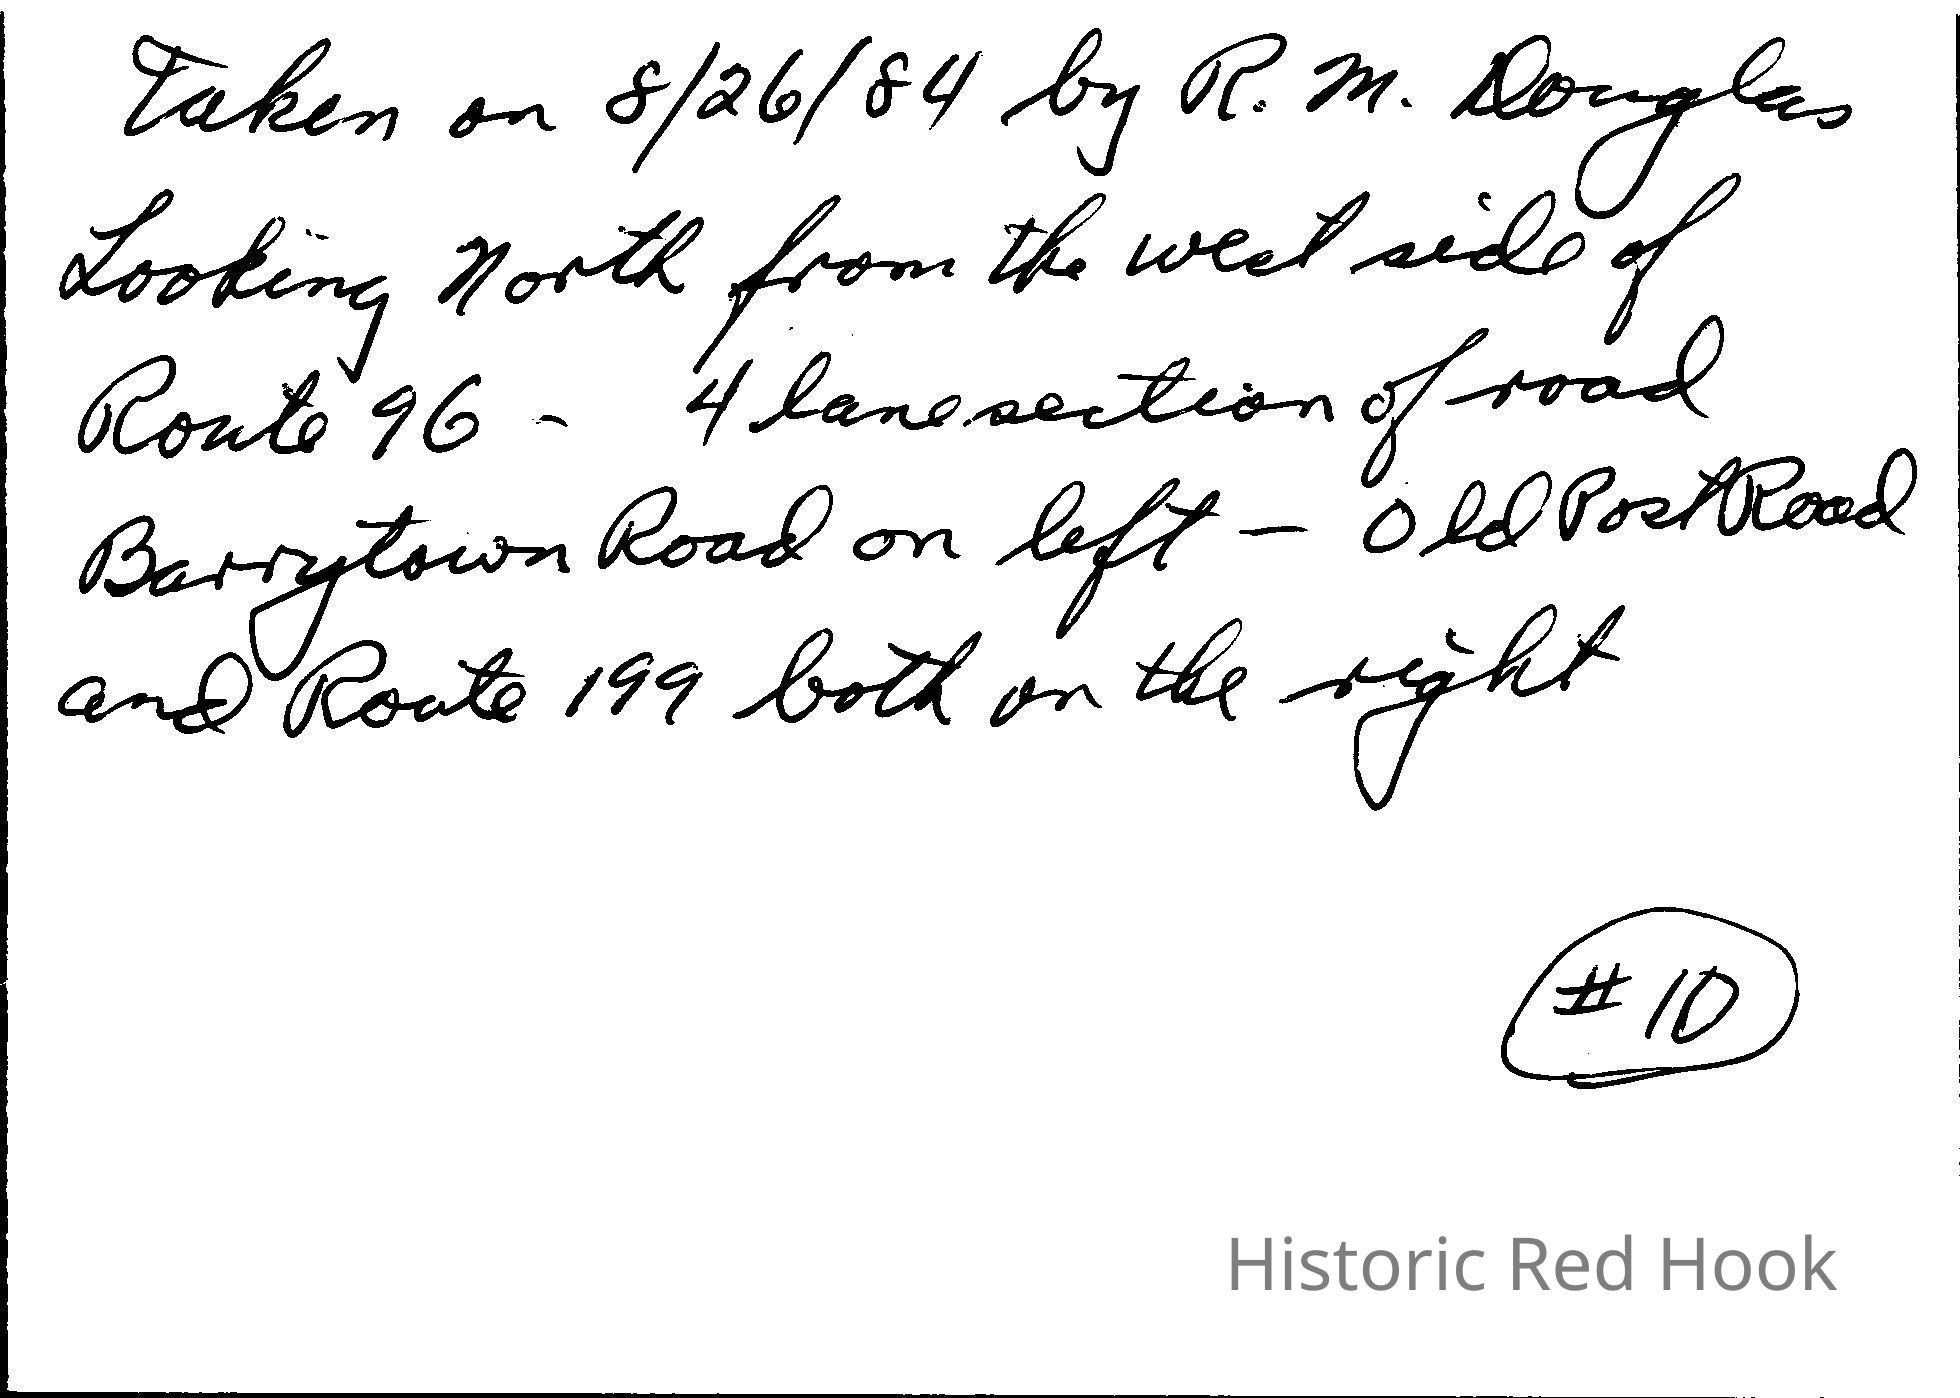 Taken on 8/26/84 by R. M. Douglas
Looking North from the west side of
Route 96 - 4 lane section of road
Barrytown Road on left - Old Post Road
and Route 199 both on the right
#10
Historic Red Hook